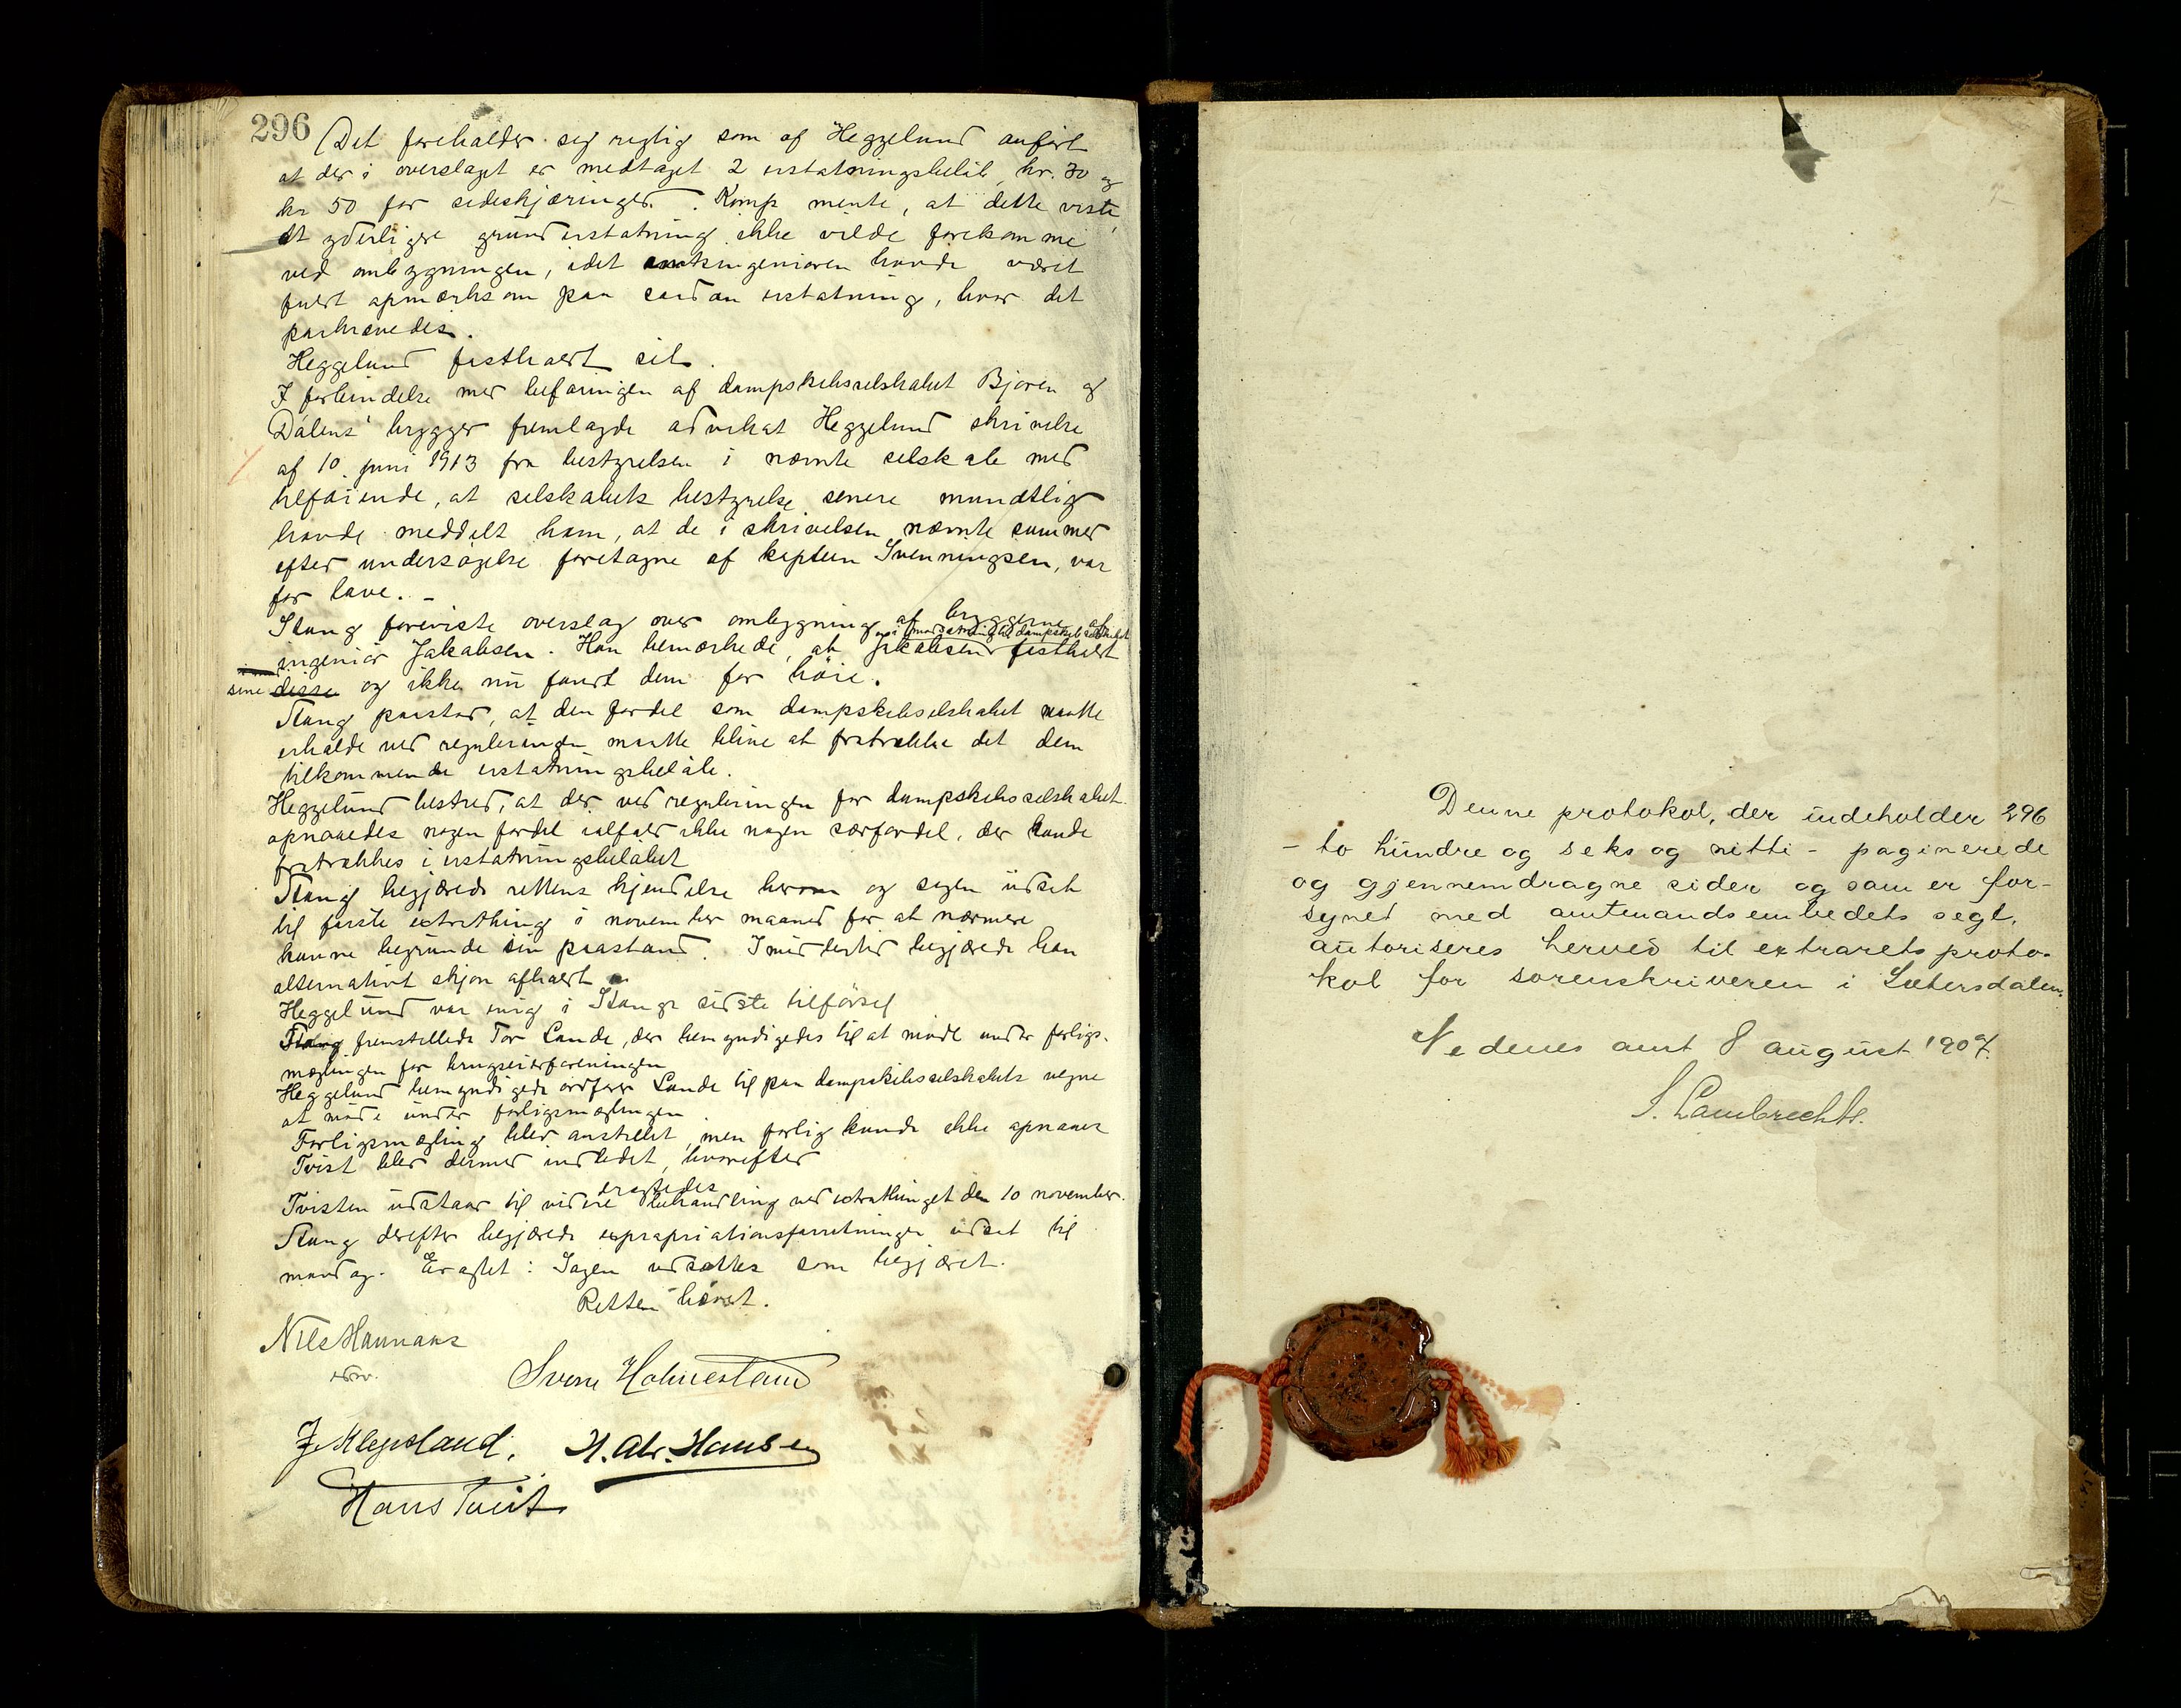 296
Det forholder sig rigtig som af Heggelund anført
at der i overslaget er medtaget 2 erstatningsbeløb, kr. 70 og
kr 50 for sideskjæringer. Komp mente, at dette viste,
at yderligere grunderstatning ikke vilde forekomme
ved ombygningen, idet amtsingeniøren havde været
fuldt opmerksom paa saadan erstatning, hvor det
paakrævedes.
Heggelund fastholdt sit.
I forbindelse med befaringen af dampskibsselskabet Bjoren og
Dålens brygger fremlagde advokat Heggelund skrivelse
af 10 juni 1913 fra bestyrelsen i nævnte selskab med
tilføiende, at selskabets bestyrelse senere mundtlig
havde meddelt ham, at de i skrivelsen nævnte summer
efter undersøgelse foretagne af kaptein Svenningsen, var
for lave. -
Stang foreviste overslag over ombygning af bryggerne af
i modsætning til dampskibsselskabet
ingeniør Jakobsen. Han bemærkede, at Jakobsen fastholdt
sine disse og ikke nu fandt dem for høie.
Stang paastod, at den fordel som dampskibsselskabet maatte
erholde ved reguleringen maatte blive at fratrække det dem
tilkommende erstatningsbeløb.
Heggelund bestred, at der ved reguleringen for dampskibsselskabet
opnaaedes nogen fordel ialfald ikke nogen særfordel, der kunde
fratrækkes i erstatningsbeløbet
Stang begjærede rettens kjendelse herom og sagen udsat
til første extrathing i november maaned for at nærmere
kunne begrunde sin paastand. Imidlertid begjærede han
alternativt skjøn afholdt
Heggelund var enig i Stangs sidste tilførsel
Stang fremstillede Tor Lande, der bemyndigedes til at møde under forligs-
mæglingen for brugseierforeningen
Heggelund bemyndigede ordfører Lande til paa dampskibsselskabets vegne
at møde under forligsmæglingen.
Forligsmægling blev anstillet, men forlig kunde ikke opnaaes
Tvist blev dermed indledet, hvorefter
eragtedes
Tvisten udstaar til videre behandling ved extrathinget den 10 november.
Stang derefter begjærede expropriationsforretningen udsat til
mandag. Eragtet: Sagen udsættes som begjæret.
Retten hævet.
Nils Hannaas
Sverre Holmestand
J. Klepsland. H. Alr. Hansen
Hans Tveit
Denne protokol, der indeholder 296
- to hundre og seks og nitti - paginerede
og gjennemdragne sider og som er for-
synet med amtmandsembedets segl,
autoriseres herved til extrarets proto-
kol for sorenskriveren i Sætersdalen.
Nedenes amt 8 august 1907.
S. Lambrechts.